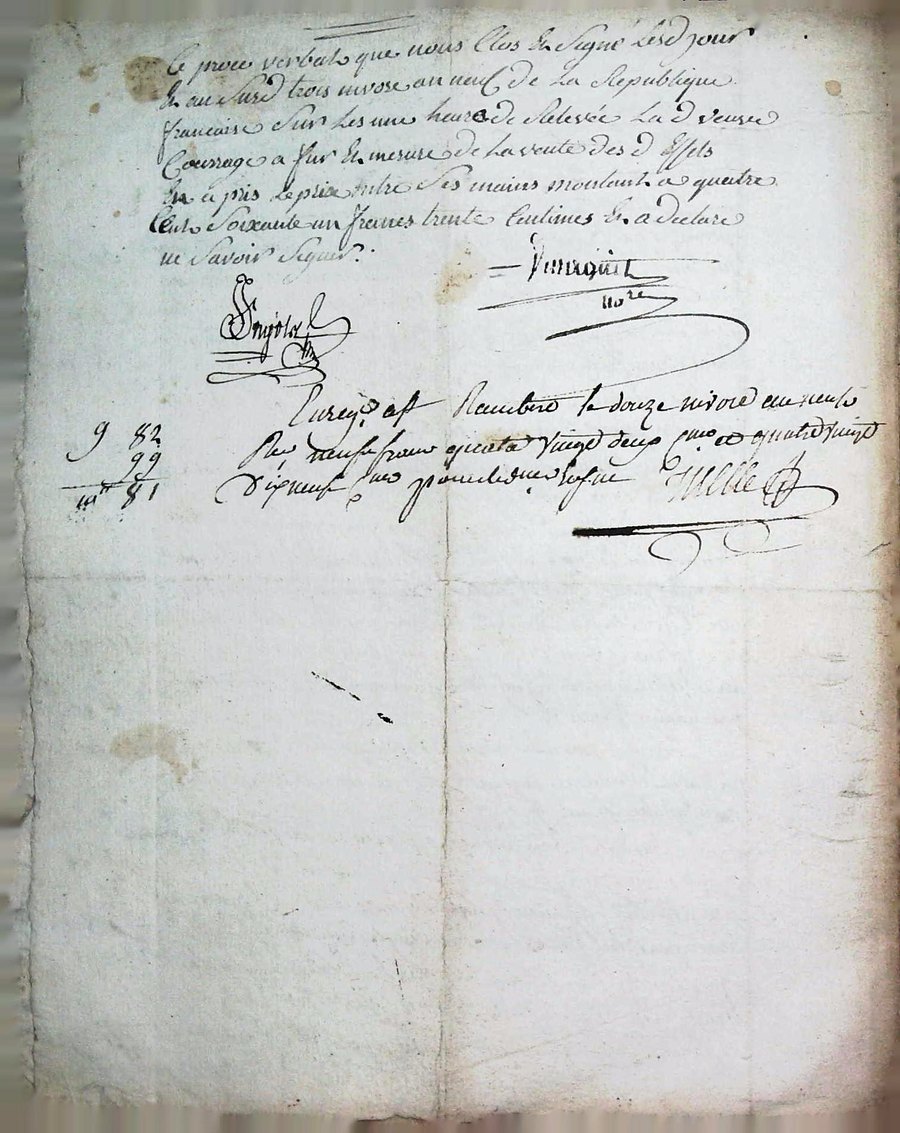 Le proces verbal que nous Clos Et Signé Lesd jour
Et an Susd trois nivose an neuf de La Republique
francaise Sur Les une heure de Relevée La d veuve
Courrage a fur Et mesure de La vente des d Effets
En a pris Le prix Entre Ses mains montant a quatre
Cent Soixante un francs trente Centimes Et a declare
ne Savoir Signer.
nore
Enreg. a St Rambert le douze nivose an neuf
9 82 Reç neuf franc quatre vingt deux cmes et quatre vingt
99
10 81 Dixneuf cmes pour